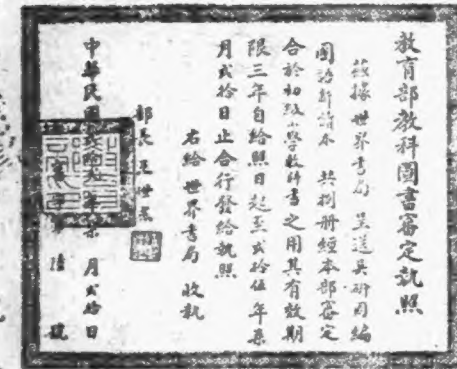 教育部教科圖書審定執照
茲據世界書局呈送吳研因編
國語新讀本 共捌冊經本部審定
合於初級小學教科書之用其有效期
限三年自給照日起至貳拾伍年柒
月貳拾日止合行發給執照
右給世界書局 收執
部長王世杰
中華民國 年柒月貳拾日
字第 陸 號